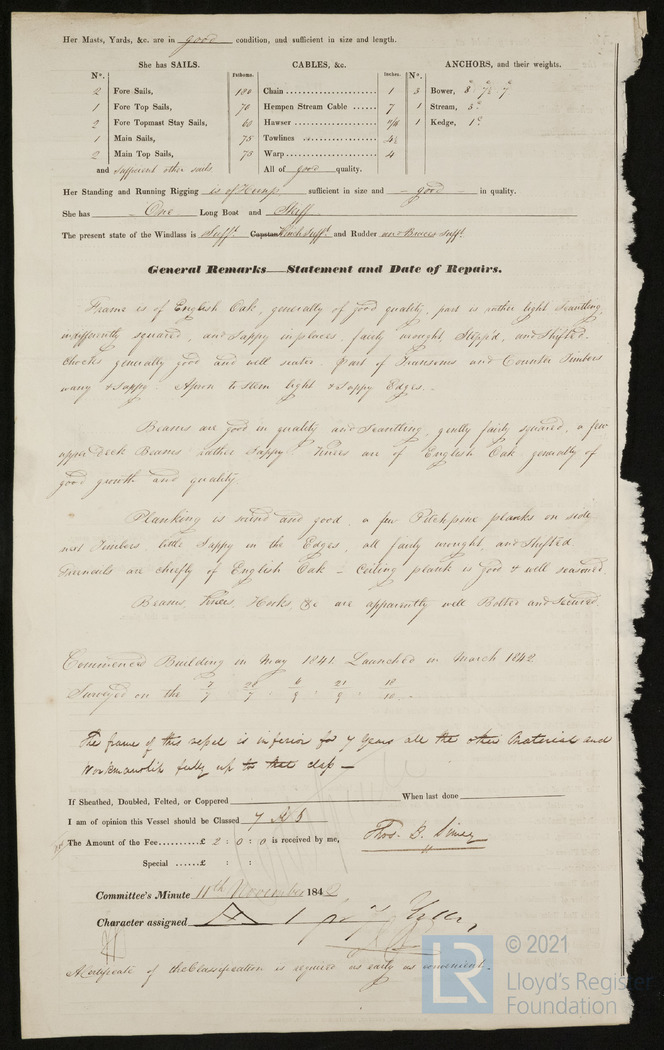 Her Masts, Yards, &c. are in good condition, and sufficient in size and length.
She has SAILS. CABLES, &c. ANCHORS, and their weights.
N°. Fathoms. Inches. N°.
2 Fore Sails, 100 Chain 1 3 Bower,
1 Fore Top Sails, 70 Hempen Stream Cable 7 1 Stream,
2 Fore Topmast Stay Sails, 60 Hawser 1 Kedge,
1 Main Sails, 75 Towlines 4½
2 Main Top Sails, 75 Warp 4
and sufficient other sails All of good quality.
Her Standing and Running Rigging is of Hemp sufficient in size and good in quality.
She has One Long Boat and Skiff
The present state of the Windlass is Suff.t Capstan Winch Suff.t and Rudder and Braces Suff.t
General Remarks—Statement and Date of Repairs.
Frame is of English Oak, generally of good quality, part is rather light Scantling
indifferently squared, and Sappy in places, fairly wrought, Stepp'd, and Shifted.
Chocks generally good and well seated. Part of Transoms and Counter Timbers
wany & Sappy. Apron to Stem light & Sappy Edges.
Beams are good in quality and Scantling, gently fairly squared, a few
upper deck Beams rather Sappy. Knees are of English Oak generally of
good growth and quality.
Planking is sound and good, a few Pitchpine planks on side
next Timbers, little Sappy in the Edges, all fairly wrought, and Shifted
Treenails are chiefly of English Oak – Ceiling plank is good & well seasoned.
Beams, Knees, Hooks, &c are apparently well Bolted and Secured.
Commenced Building in May 1841. Launched in March 1842
Surveyed on the 7/7 26/7 6/9 21/9 18/10
The frame of this vessel is inferior for 7 years all the other Material and
Workmanship fully up to that class –
If Sheathed, Doubled, Felted, or Coppered When last done
I am of opinion this Vessel should be Classed 7 A 1
The Amount of the Fee......£ 2 : 0 : 0 is received by me,
Special ......£ : :
Committee's Minute 11th November 1842
Character assigned A 1
A Certificate of the Classification is required as early as convenient.
LR
© 2021
Lloyd's Register
Foundation